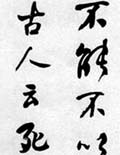 不能不以
古人云死